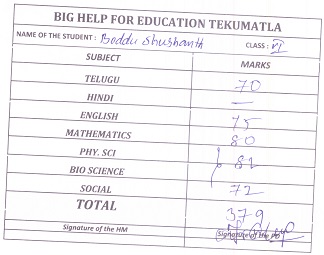 BIG HELP FOR EDUCATION TEKUMATLA
NAME OF THE STUDENT : Boddu Shushanth CLASS : VI
SUBJECT MARKS
TELUGU 70
HINDI —
ENGLISH 75
MATHEMATICS 80
PHY. SCI 82
BIO SCIENCE
SOCIAL 72
TOTAL 379
Signature of the HM Signature of the